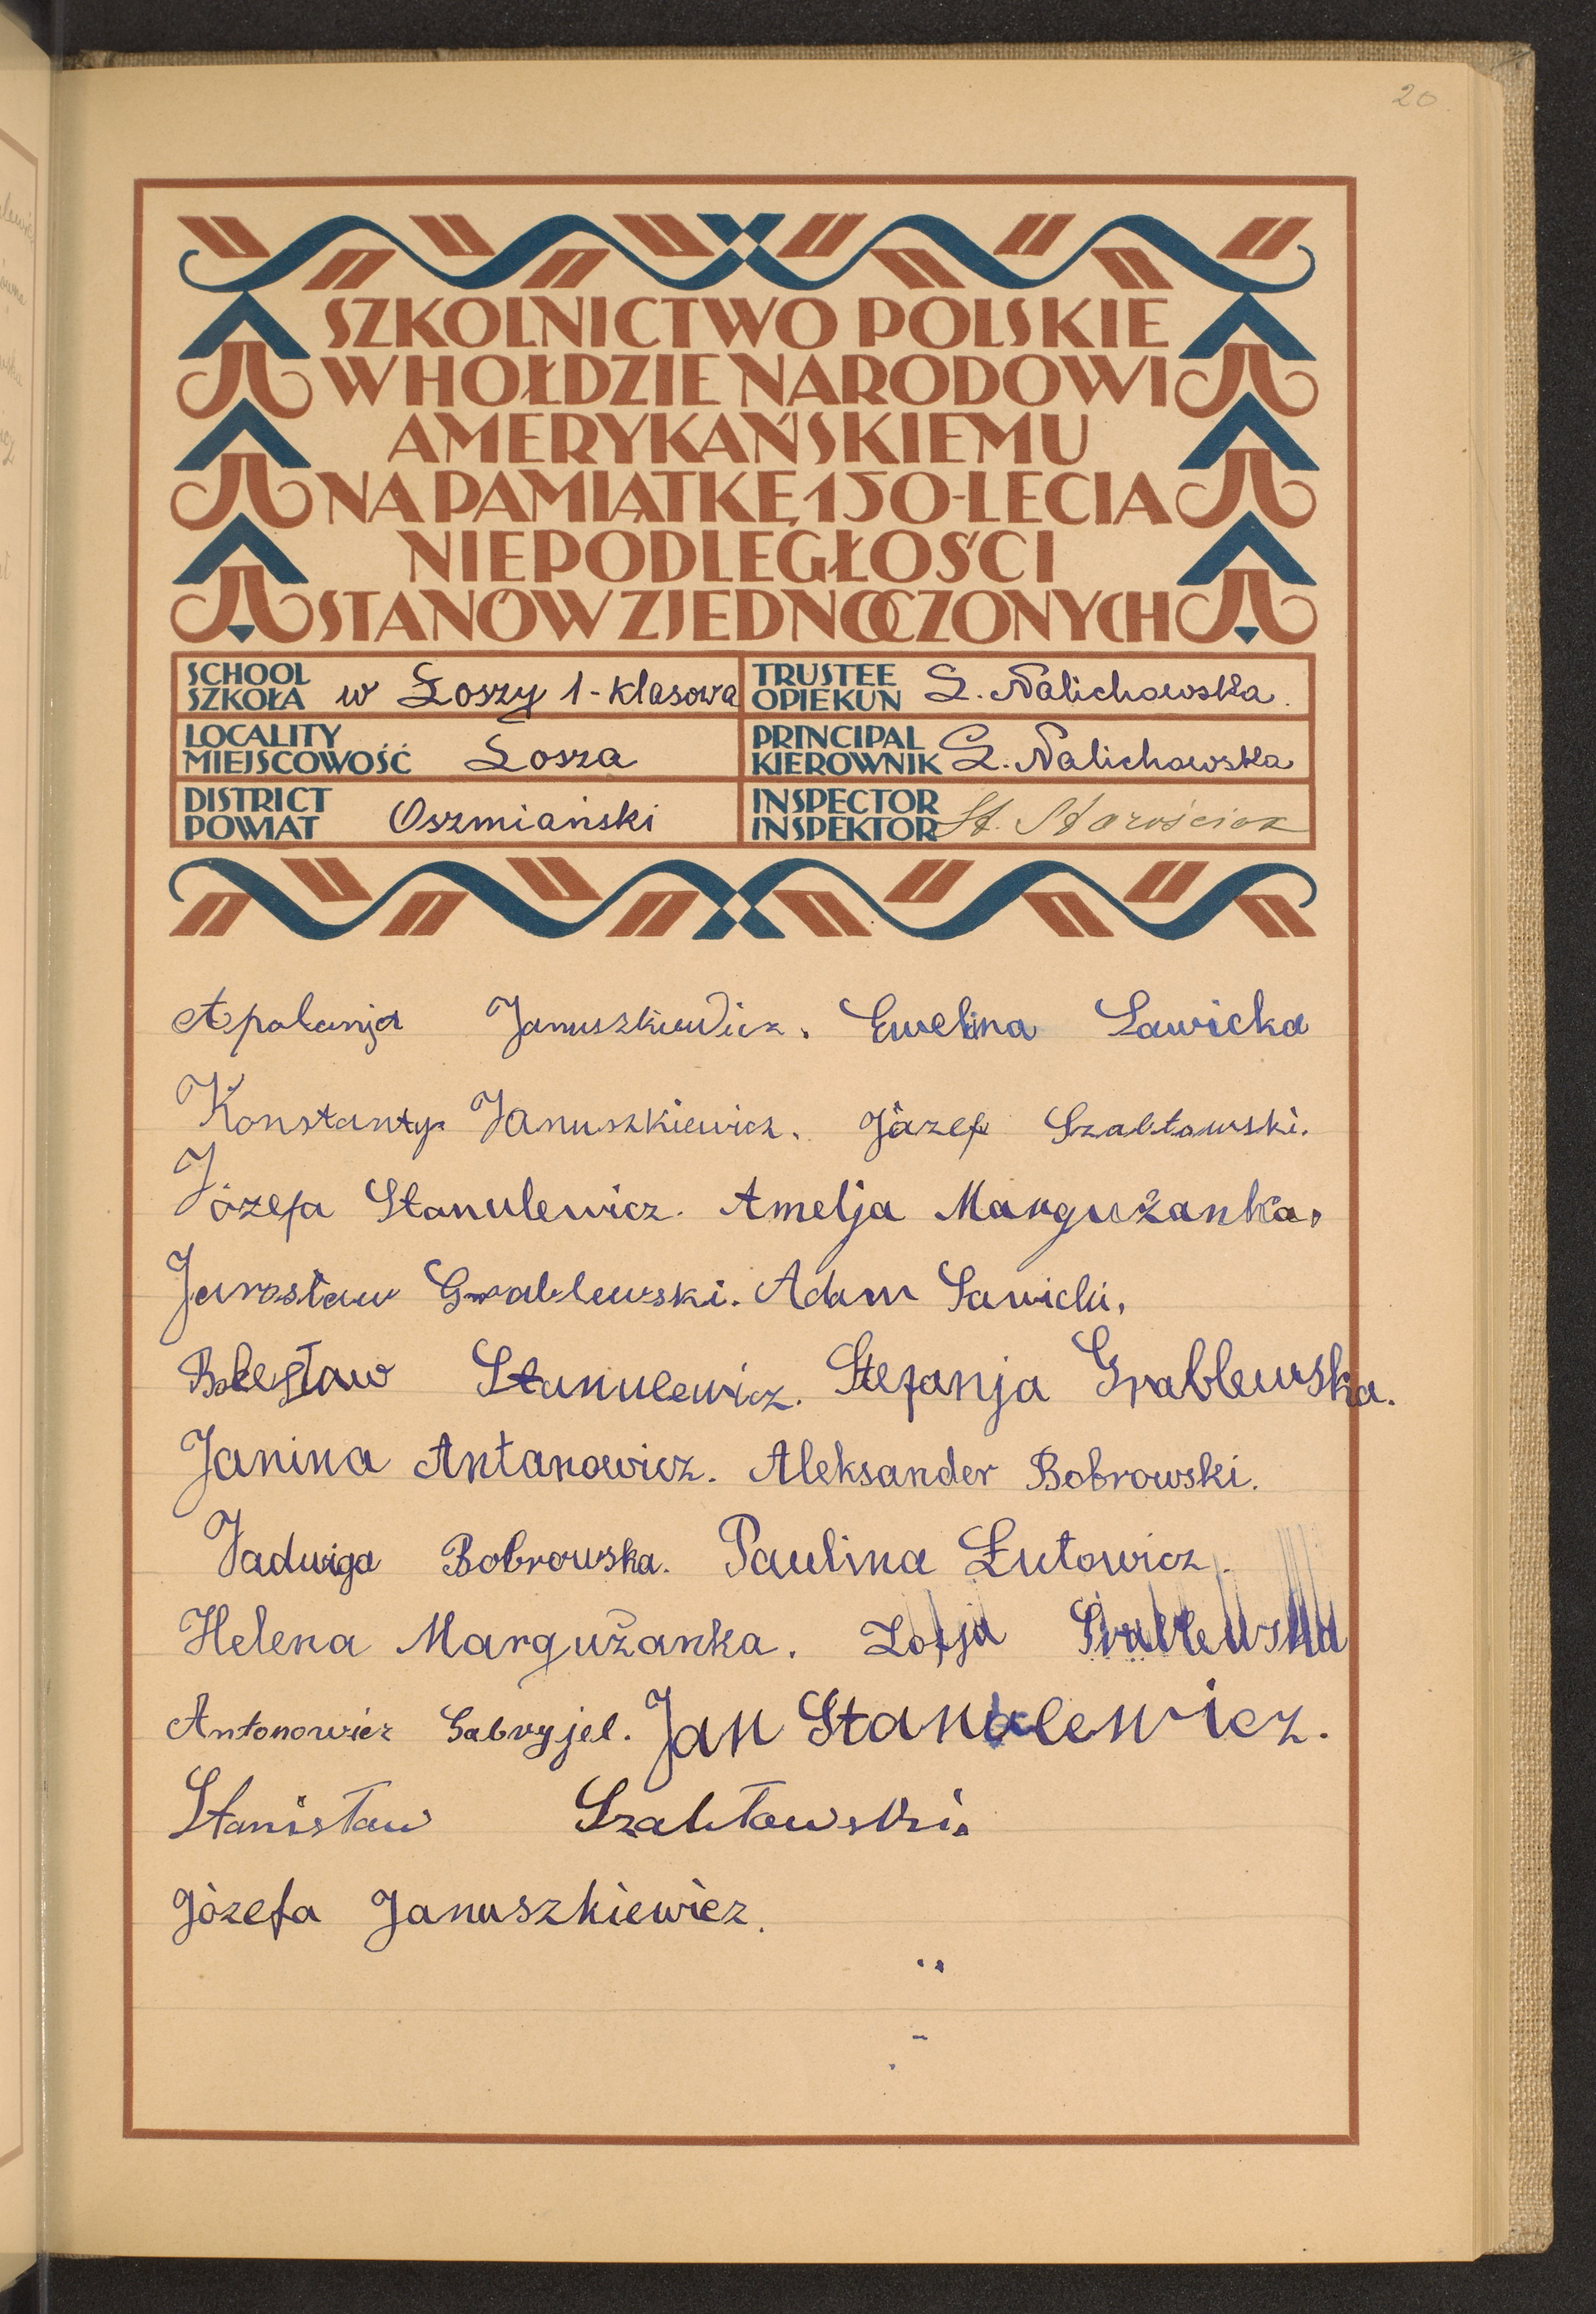 20
SZKOLNICTWO POLSKIE
W HOŁDZIE NARODOWI
AMERYKAŃSKIEMU
NA PAMIĄTKĘ 150-LECIA
NIEPODLEGŁOŚCI
STANÓW ZJEDNOCZONYCH
SCHOOL SZKOŁA w Łoszy 1-klasowa TRUSTEE OPIEKUN L. Nalichowska.
LOCALITY MIEJSCOWOŚĆ Łosza PRINCIPAL KIEROWNIK L. Nalichowska
DISTRICT POWIAT Oszmiański INSPECTOR INSPEKTOR St. Starościak
Apolanja Januszkiewicz. Ewelina Sawicka
Konstanty Januszkiewicz. Józef Szabłowski.
Józefa Stanulewicz. Amelja Margużanka.
Jarosław Grablewski. Adam Sawicki.
Bolesław Stanulewicz. Stefanja Grablewska.
Janina Antanowicz. Aleksander Bobrowski.
Jadwiga Bobrowska. Paulina Łutowicz.
Helena Margużanka. Zofja
Antonowicz Gabryjel. Jan Stanulewicz.
Stanisław Szabłowski.
Józefa Januszkiewicz.